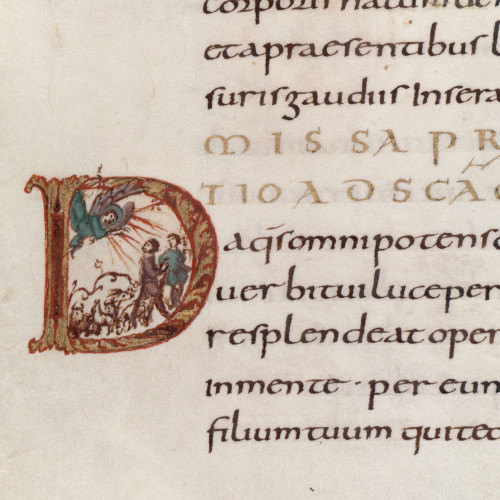 corporis
et a praesentibus
suris gaudiis Insera
MISSA PR
TIO AD SCA
Da qs omnipotens
uerbi tui luce per
resplendeat oper
in mente · per eun
filium tuum qui tec